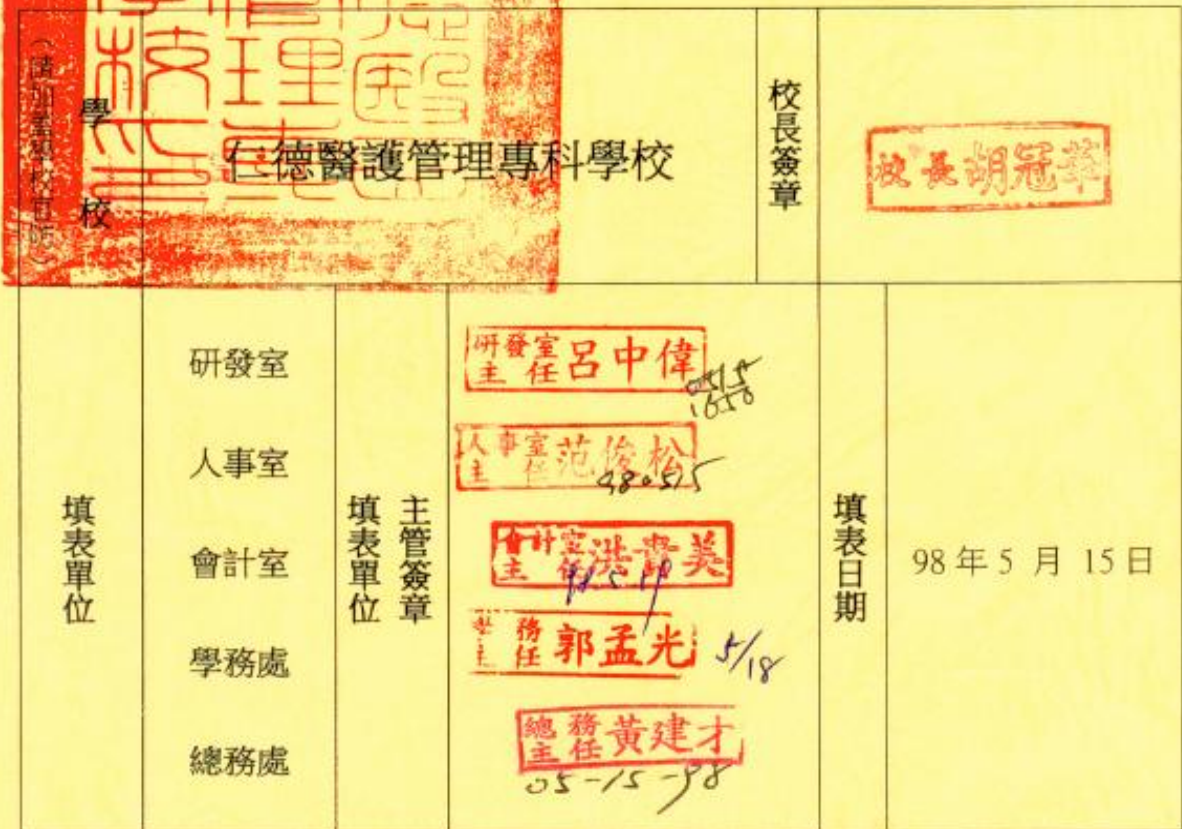 學校
(請加蓋學校官防)
仁德醫護管理專科學校
校長簽章
校長胡冠華
填表單位
研發室
人事室
會計室
學務處
總務處
填表單位
主管簽章
研發室主任 呂中偉
1650
人事室主任 范俊松
980515
會計室主任 洪貴美
務主任 郭孟光
5/18
總務主任 黃建才
05-15-98
填表日期
98年5月15日